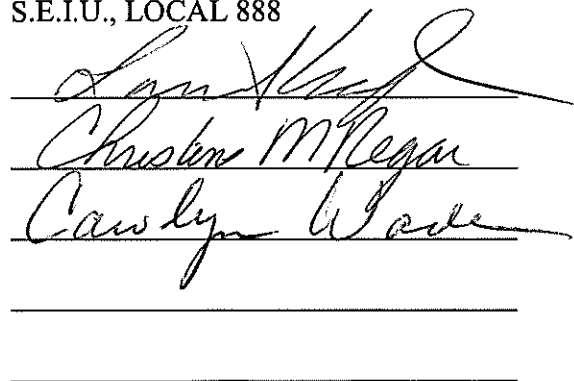 S.E.I.U., LOCAL 888
Christine M Regan
Carolyn Wade